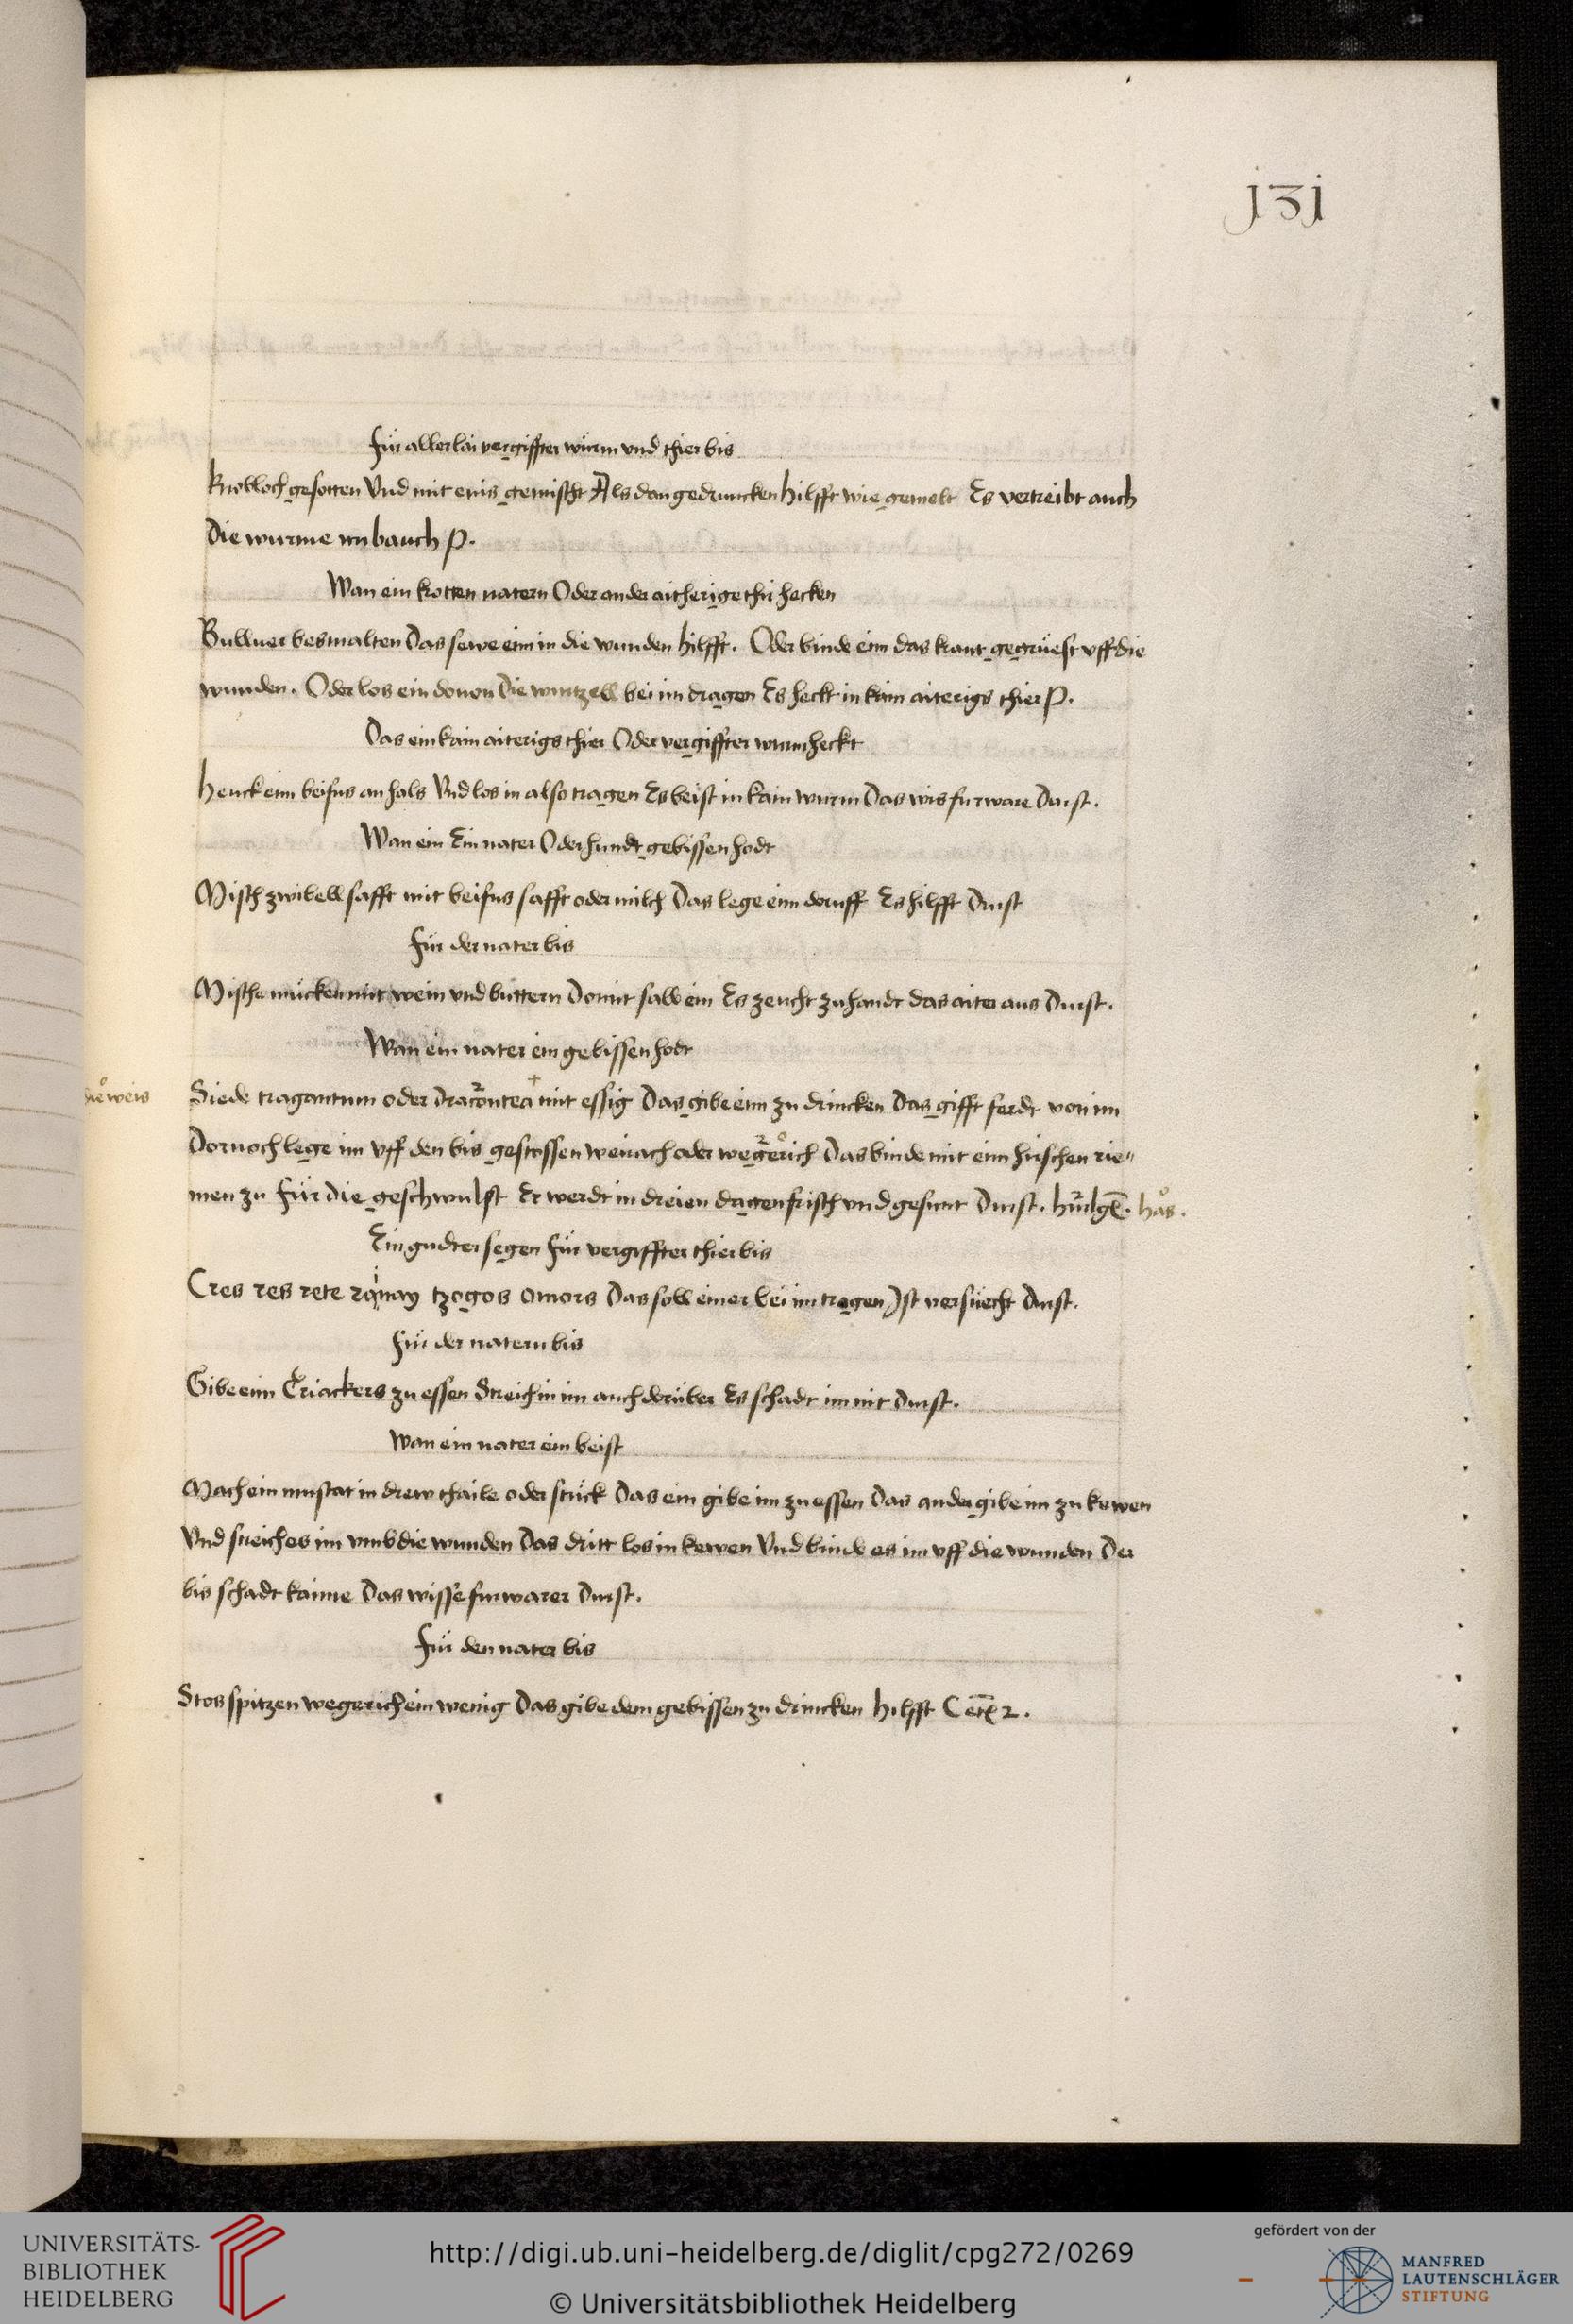 j3j
Für allerlai vergiffter würm vnd thier bis
Knobloch gesotten Vnd mit enis gemischt Als dan gedruncken hilfft wie gemelt Es vertreibt auch
die wurme im bauch p.
Wan ein krotten natern Oder ander aitherige thir hecken
Bulluer besmalten Das sewe eim in die wunden hilfft. Oder binde eim das kraut gegrüest vff die
wunden. Oder los ein douon Die wurtzell bei im dragen Es heckt in kain aiterigs thier p.
Das ein kain aiterigs thier Oder vergiffter wurm heckt
Henck eim beifus an hals Vnd los in also tragen Es beist in kain wurm Das wis furware Durst.
Wan ein Ein nater Oder hundt gebissen hodt
Misch zwibell safft mit beifus safft oder milch Das lege eim doruff Es hilfft Durst
Für der nater bis
Mische mücken mit wein vnd buttern Domit salb ein Es zeucht zuhandt das aiter aus Durst.
Wan ein nater ein gebissen hodt
die weis
Siede tragantum oder dracontea mit essig Das gibe eim zu drincken Das gifft ferdt von im
Dornoch lege im vff den bis gestossen weirach oder wegerich Das binde mit eim hirschen rie"
men zu Für die geschwulst Er werdt in dreien dagen frisch vnd gesunt Durst. has.
Ein gudter segen Für vergiffter thier bis
Cres res rete ranay tzogos omors Das soll einer bei im tragen Ist versuecht Durst.
Für der natern bis
Gibe eim Triackers zu essen Streich in im auch dorüber Es schadt im nit Durst.
Wan ein nater ein beist
Mach ein muscat in drew thaile oder stück Das ein gibe im zu essen Das ander gibe im zu kewen
Vnd streich es im vmb die wunden Das dritt los in kewen Vnd binde es im vff die wunden Der
bis schadt kaime Das wisse furwarer Durst.
Für den nater bis
Stos spitzen wegerich ein wenig Das gibe dem gebissen zu drincken hilfft
UNIVERSITÄTS-
BIBLIOTHEK
HEIDELBERG
http://digi.ub.uni-heidelberg.de/diglit/cpg272/0269
© Universitätsbibliothek Heidelberg
gefördert von der
MANFRED
LAUTENSCHLÄGER
STIFTUNG